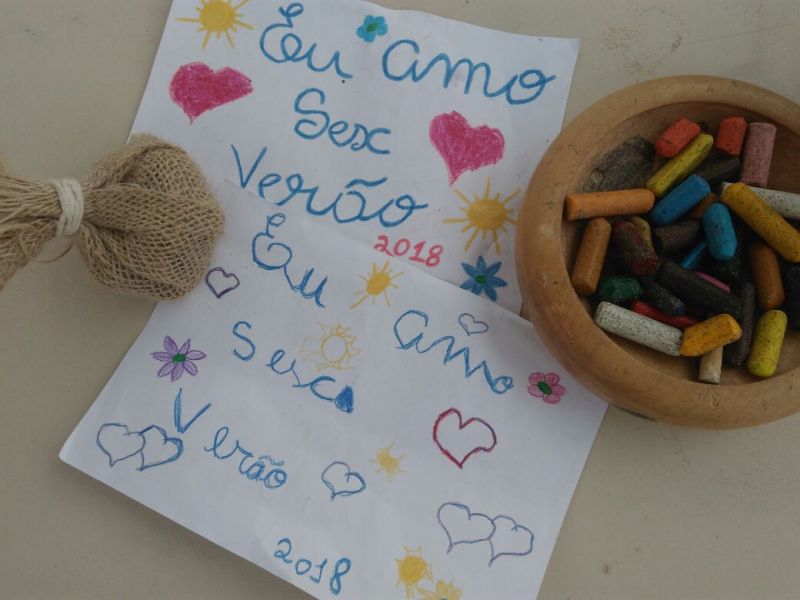 Eu amo
Sesc
Verão
2018
Eu amo
Sesc
Verão
2018